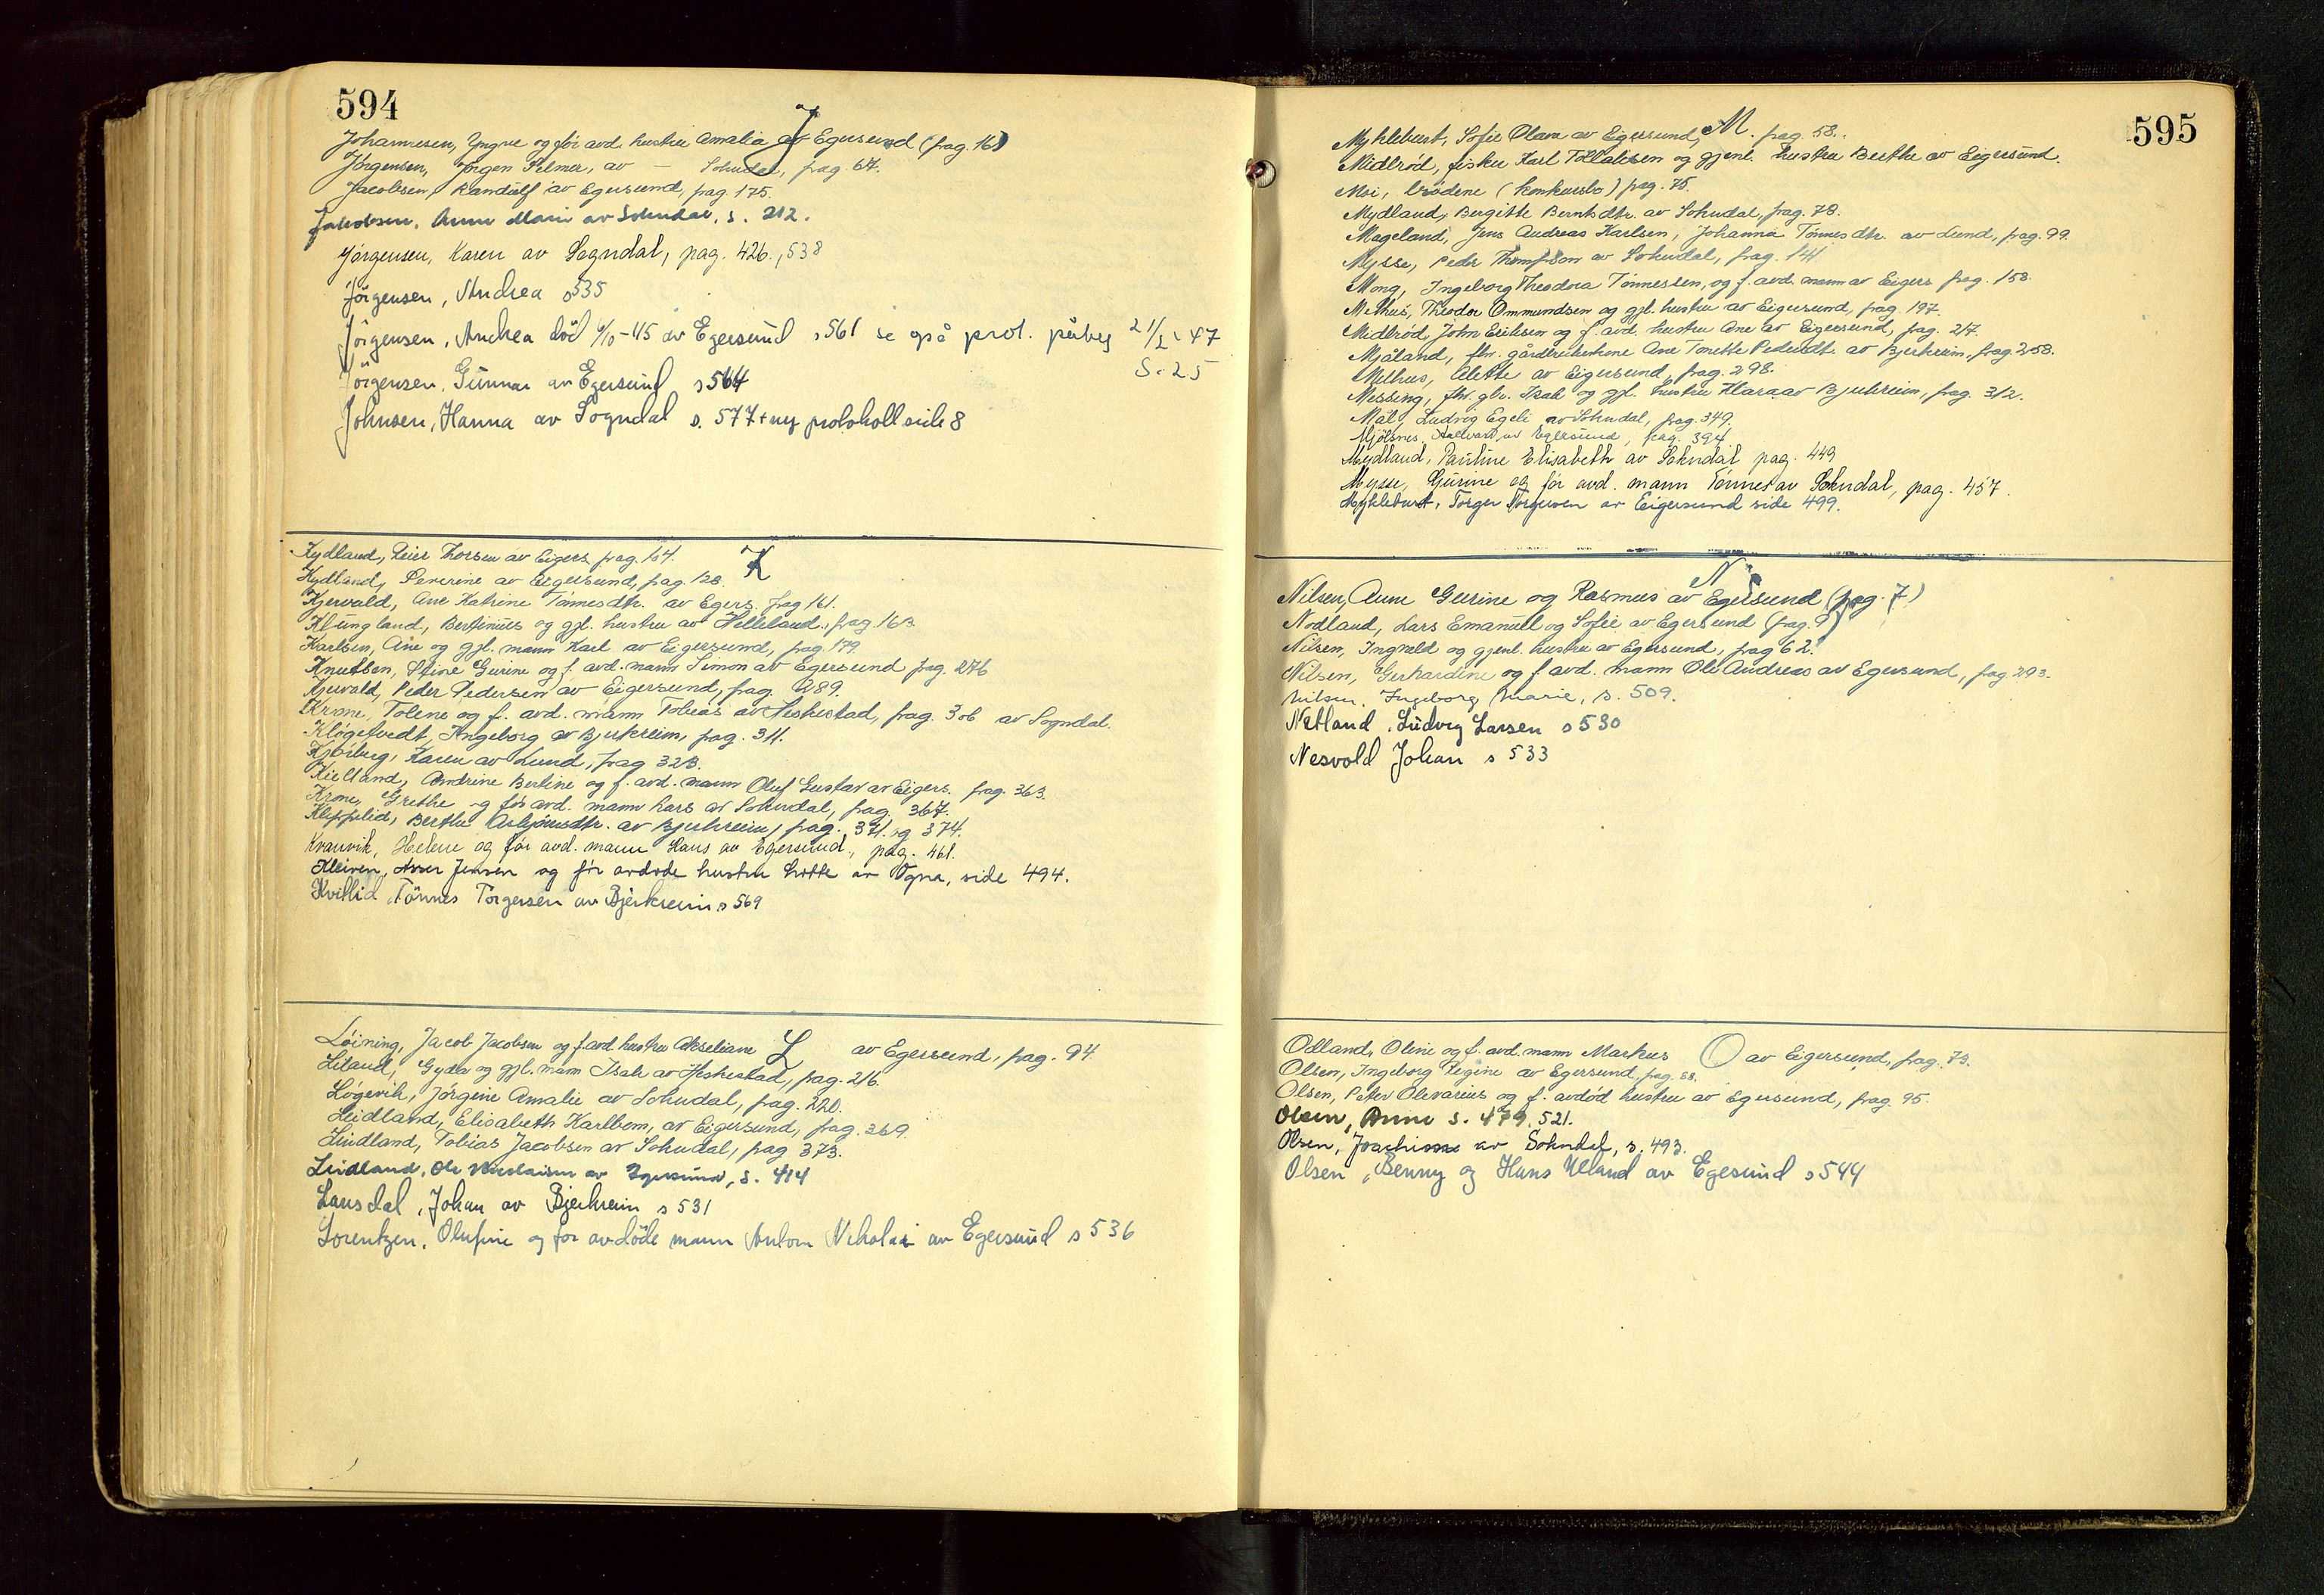 594
J
Johannesen, Yngve og for avd. hustru Amalia av Egersund (pag. 16)
Jørgensen, Jørgen Selmer, av — Sohndal, pag. 67.
Jacobsen, Randulf av Egersund, pag 175.
Jakobsen, Anne Marie av Sokndal, s. 212.
Jørgensen, Karen av Sogndal, pag. 426., 538
Jörgensen, Andrea s 535
Jörgensen, Andrea död 4/10-45 av Egersund s 561 se også prot. påbeg 21/2 - 47
S. 25
Jörgensen, Gunnar av Egersund s 564
Johnsen, Hanna av Sogndal s. 577 + ny protokoll side 8
K
Kydland, Peier Thorsen av Eigers pag. 104.
Kydland, Severine av Eigersund, pag. 128.
Kjervald, Ane Katrine Tønnesdtr. av Egers. pag 161.
Klungland, Bertinius og gjl. hustru av Helleland, pag. 163
Karlsen, Ane og gjl. mann Karl av Eigersund, pag 179.
Knutsen, Stine Gurine og f. avd. mann Simon av Egersund pag. 276
Kjervald, Peder Pedersen av Eigersund, pag. 289.
Krone, Tolene og f. avd. mann Tobias av Heskestad, pag. 306 av Sogndal.
Kløgetvedt, Ingeborg av Bjerkreim, pag. 311.
Kjøiberg, Karen av Lund, pag 323.
Kielland, Andrine Bertine og f. avd. mann Oluf Gustav av Eigers. pag. 363.
Krone, Grethe og for avd. mann Lars av Sokndal, pag. 367.
Kleppelid, Berthe Asbjørnsdtr. av Bjerkreim, pag. 371. og 374.
Kvanvik, Helene og for avd. mann Hans av Egersund, pag. 461.
Kleiven, Asser Jensen og for avdøde hustru Lotte av Ogna, side 494.
Kvitlid, Tönnes Torgersen av Bjerkreim s 569
L
Løining, Jacob Jacobsen og f. avd. hustru Akseliane av Egersund, pag. 94
Litland, Gyda og gjl. mann Isak av Heskestad, pag. 216.
Løgevik, Jørgine Amalie av Sokndal, pag. 220.
Leidland, Elisabeth Karlbom, av Eigersund, pag. 369.
Lindland, Tobias Jacobsen av Sokndal, pag 373.
Leidland, Ole Nicolaisen av Egersund, s. 414
Lausdal, Johan av Bjerkreim s 531
Lorentzen, Olufine og for avdöde mann Anton Nikolai av Egersund s 536
595
M.
Myklebust, Sofie Olava av Eigersund, pag. 58.
Midtrød, fisker Karl Tollaksen og gjenl. hustru Berthe av Eigersund.
Moi, brødene (konkursbo) pag. 75.
Mydland, Bergitte Berntsdtr. av Sohndal, pag. 78.
Mageland, Jens Andreas Karlsen, Johanna Tønnesdtr. av Lund, pag. 99.
Mysse, Peder Thompson av Sokndal, pag. 141
Mong, Ingeborg Theodora Tønnessen, og f. avd. mann av Eigers pag. 158.
Melhus, Theodor Ommundsen og gjl. hustru av Eigersund, pag. 197.
Midbrød, John Eriksen og f. avd. hustru Ane av Eigersund, pag. 217.
Mjåland, fhv. gårdbrukerkone Ane Tonette Pedersdtr. av Bjerkreim, pag. 258.
Melhus, Alette av Eigersund, pag. 298.
Messing, fhv. gbr. Isak og gjl. hustru Klara av Bjerkreim, pag. 312.
Mål, Ludvig Egeli av Sokndal, pag. 349.
Mjølsnes, Hallvard av Egersund, pag. 394
Mydland, Pauline Elisabeth av Sokndal pag. 449
Mysse, Gurine og for avd. mann Tønnes av Sokndal, pag. 457.
Myklebust, Torger Torgersen av Eigersund side 499.
N.
Nilsen, Anne Gurine og Rasmus av Egersund (pag. 7)
Nodland, Lars Emanuel og Sofie av Egersund (pag. 9)
Nilsen, Ingvald og gjenl. hustru av Egersund, pag 62.
Nilsen, Gerhardine og f avd. mann Ole Andreas av Egersund, pag 293.
Nilsen, Ingeborg Marie, s. 509.
Netland, Ludvig Larsen s 530
Nesvold Johan s 533
O
Odland, Oline og f. avd. mann Markus av Eigersund, pag. 73.
Olsen, Ingeborg Regine av Egersund pag. 88.
Olsen, Peter Olevarius og f. avdød hustru av Egersund, pag. 95.
Olsen, Anne s. 479, 521.
Olsen, Joachim av Sokndal, s. 493.
Olsen, Benny og Hans Ueland av Egesund s 544